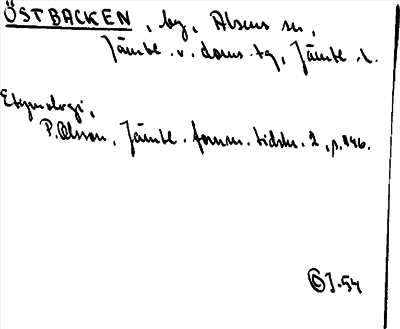 ÖSTBACKEN, by, Alsens sn,
Jämtl. v. doms. tg, Jämtl. l.
Etymologi,
P. Olsson, Jämtl. fornm. tidskr. 2, p. 146.
J-54